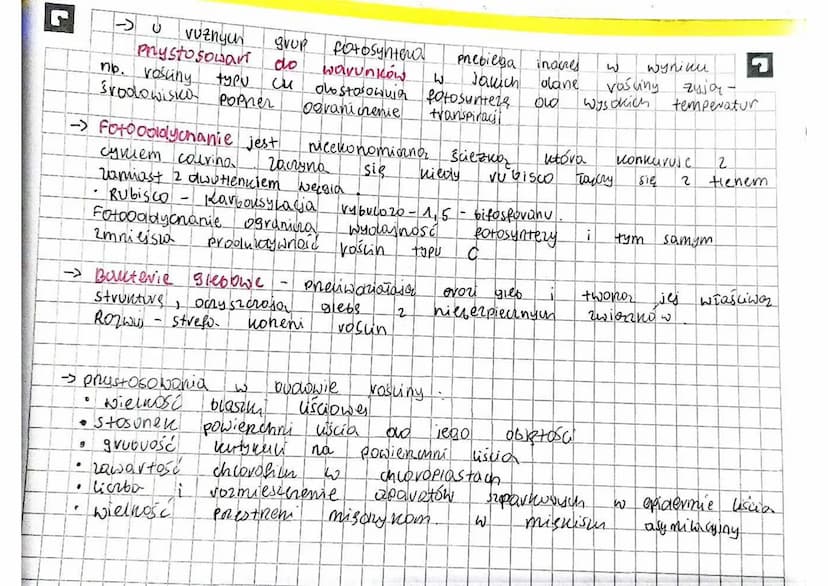 → U różnych grup fotosynteza przebiega inaczej w wyniku
przystosowań do warunków w jakich dane rośliny żyją -
np. rośliny typu C4 dostosowują fotosyntezę do wysokich temperatur
środowiska poprzez ograniczenie transpiracji
→ Fotooddychanie jest nieekonomiczną ścieżką która konkuruje z
cyklem calvina. Zaczyna się kiedy rubisco łączy się z tlenem
zamiast z dwutlenkiem węgla.
• Rubisco - Karboksylacja rybulozo-1,5-bifosforanu.
Fotooddychanie ogranicza wydajność fotosyntezy i tym samym
zmniejsza produktywność roślin typu C
→ Bakterie glebowe - przeciwdziałają erozji gleb i tworzą jej właściwą
strukturę, oczyszczają glebę z niebezpiecznych związków.
Rozwój - strefa korzeni roślin
→ przystosowania w budowie rośliny.
• wielkość blaszki liściowej
• stosunek powierzchni liścia do jego objętości
• grubość kutykuli na powierzchni liścia
• zawartość chlorofilu w chloroplastach
• liczba i rozmieszczenie aparatów szparkowych w epidermie liścia
• wielkość przestrzeni międzykom. w miękiszu asymilacyjny